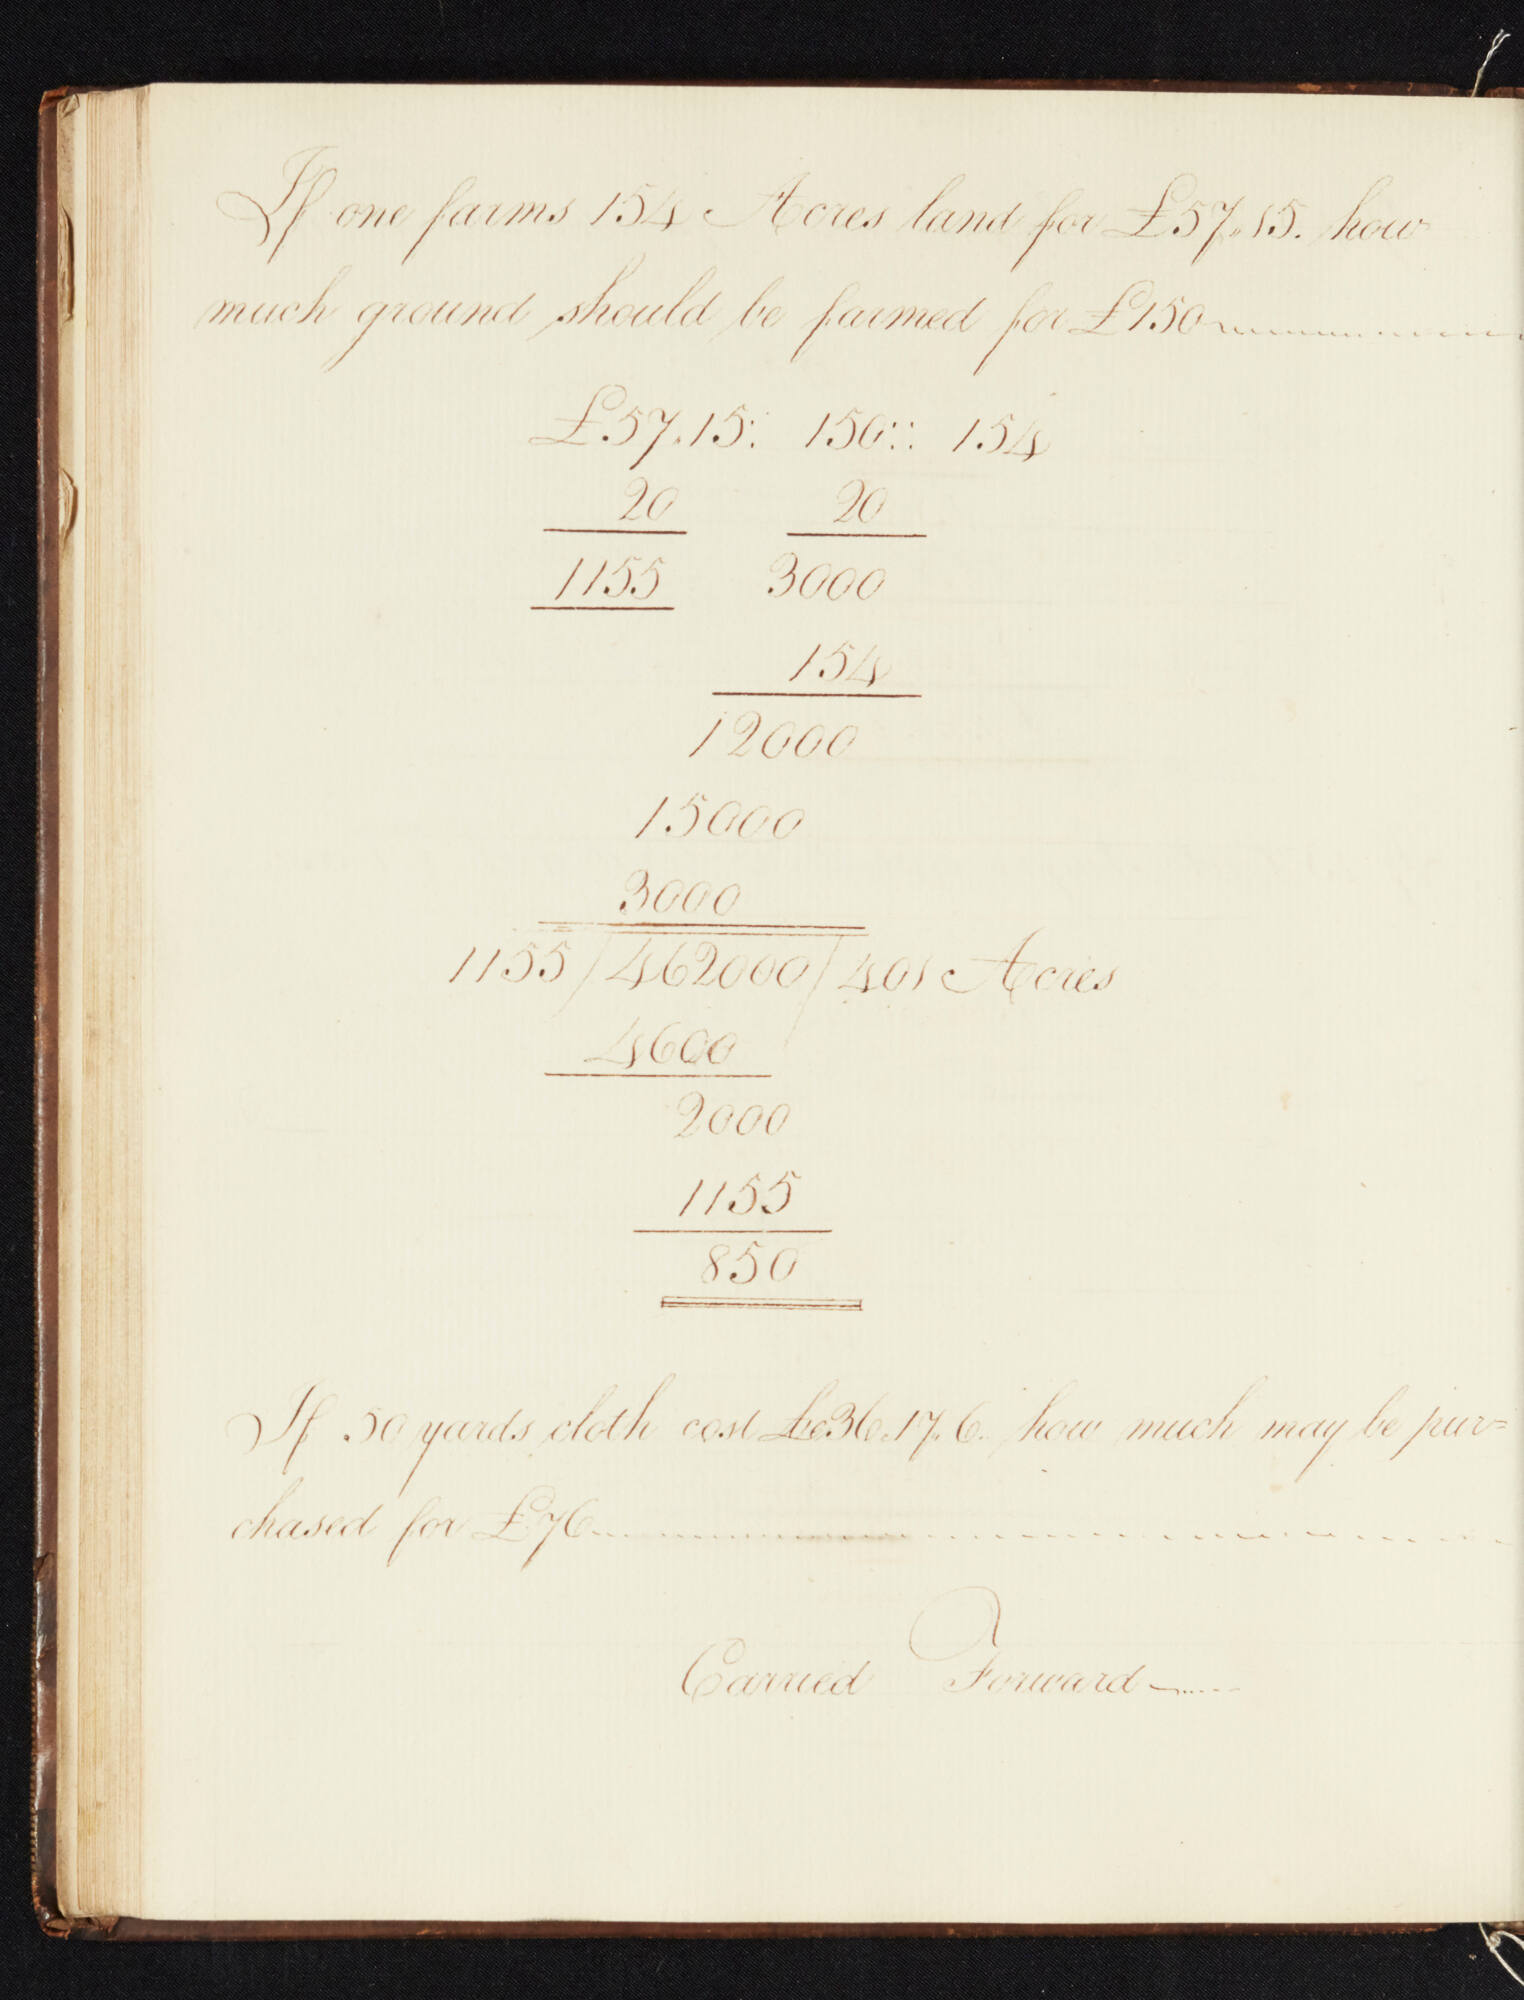 If one farms 154 Acres land for £57.15. how
much ground should be farmed for £150
£57.15: 150:: 154
20 20
1155 3000
154
12000
15000
3000
1155/462000/401 Acres
4600
2000
1155
850
If 50 yards cloth cost £36.17.6. how much may be pur=
chased for £76
Carried Forward